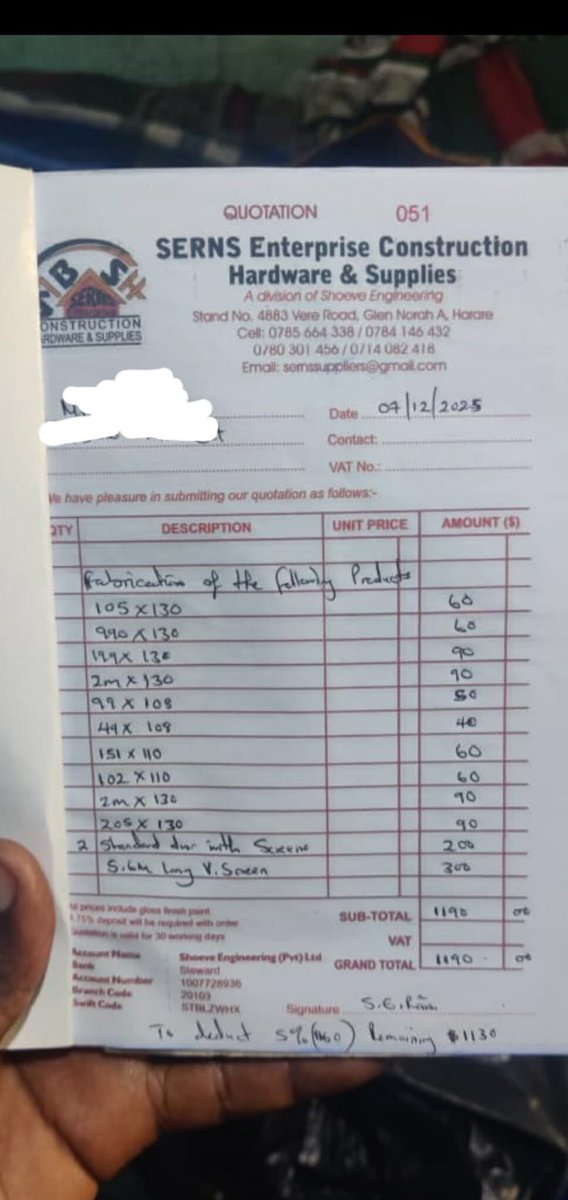 QUOTATION 051
SERNS Enterprise Construction
Hardware & Supplies
A division of Shoeve Engineering
Stand No. 4883 Vere Road, Glen Norah A, Harare
Cell: 0785 664 338 / 0784 146 432
0780 301 456 / 0714 082 418
Email: sernssuppliers@gmail.com
SBSH
SERNS
ONSTRUCTION
RDWARE & SUPPLIES
Date 07/12/2025
Contact:
VAT No.:
We have pleasure in submitting our quotation as follows:-
QTY DESCRIPTION UNIT PRICE AMOUNT ($)
Fabrication of the following Products
105 X 130 60
990 X 130 60
199 X 130 90
2m X 130 90
99 X 108 50
49 X 108 40
151 X 110 60
102 X 110 60
2m X 130 90
205 X 130 90
2 Standard door with Screene 200
5.6m long V. Screen 300
All prices include gloss finish paint
75% deposit will be required with order
Quotation is valid for 30 working days
SUB-TOTAL 1190 00
VAT
GRAND TOTAL 1190 . 00
Account Name Shoeve Engineering (Pvt) Ltd
Bank Steward
Account Number 1007728936
Branch Code 20103
Swift Code STBLZWHX
Signature S.E.
To deduct 5% Remaining $1130